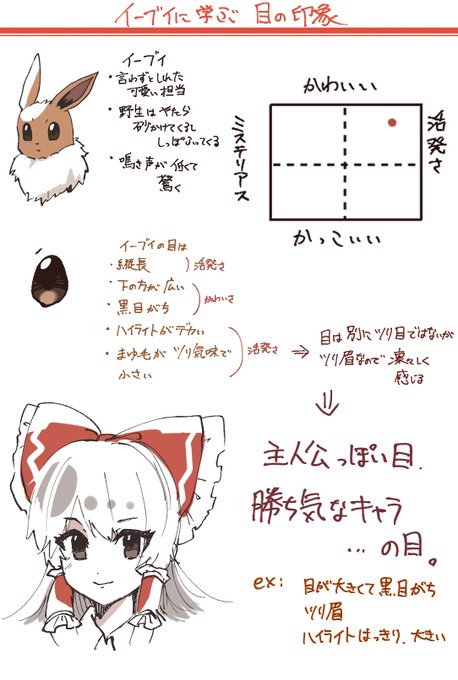 イーブイに学ぶ 目の印象
イーブイ
・言わずとしれた
可愛い担当
・野生はやたら
砂かけてくるし
しっぽふってくる
・鳴き声が低くて
驚く
かわいい
ミステリアス
活発さ
かっこいい
イーブイの目は
・縦長
活発さ
・下の方が広い
・黒目がち
かわいさ
・ハイライトがデカい
・まゆ毛がツリ気味で
小さい
活発さ
⇒ 目は別にツリ目ではないが
ツリ眉なので凛々しく
感じる
主人公っぽい目.
勝ち気なキャラ
…の目。
ex: 目が大きくて黒目がち
ツリ眉
ハイライトはっきり、大きい